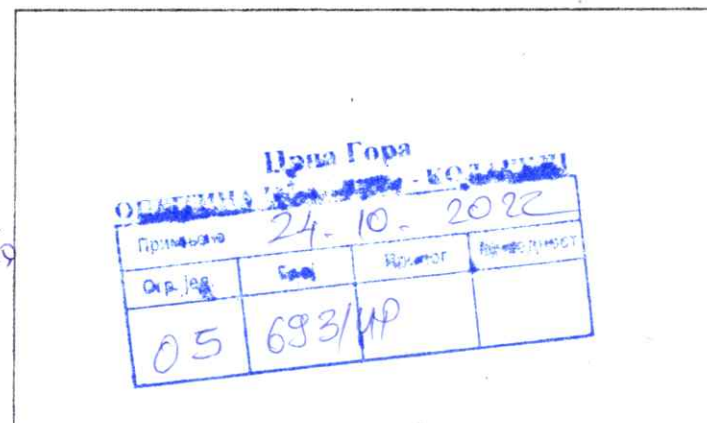 Црна Гора
ОПШТИНА - КОЛАШИН
Примљено 24. 10. 2022
Орг. јед. Број Прилог Вриједност
05 693/УР